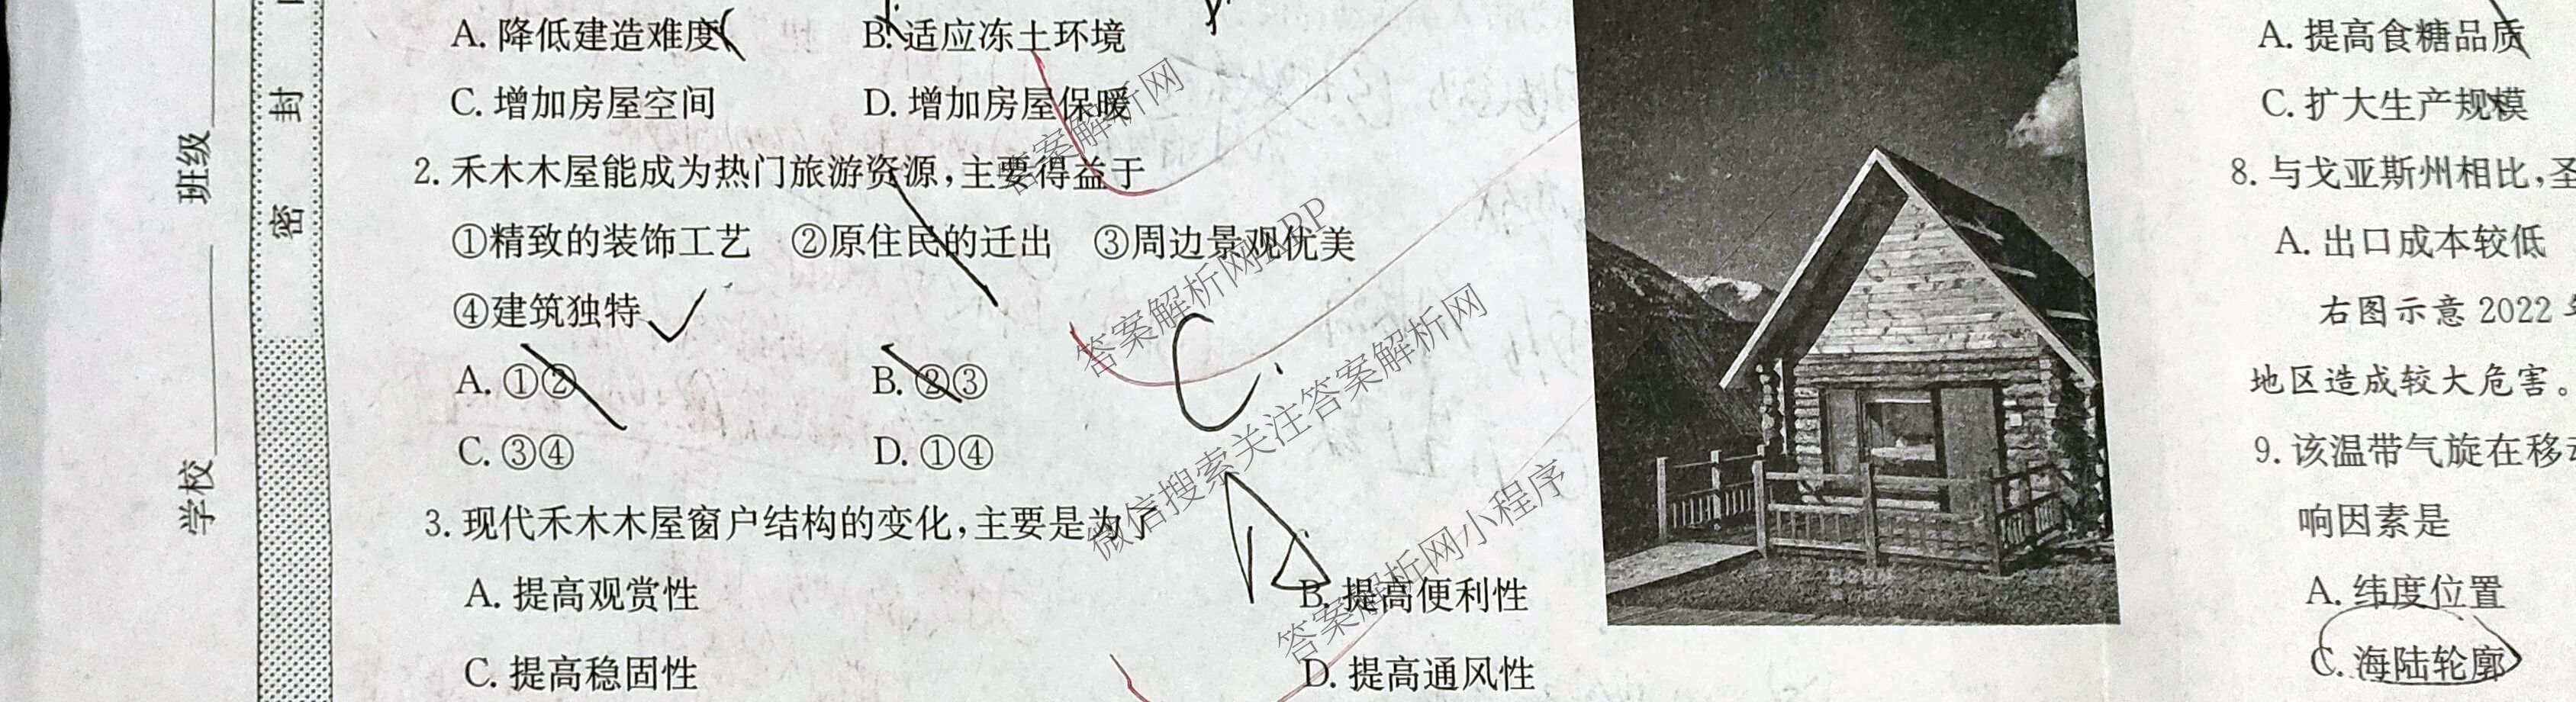 A. 降低建造难度
B. 适应冻土环境
C. 增加房屋空间
D. 增加房屋保暖
2. 禾木木屋能成为热门旅游资源,主要得益于
①精致的装饰工艺 ②原住民的迁出 ③周边景观优美
④建筑独特
A. ①②
B. ②③
C. ③④
D. ①④
C
3. 现代禾木木屋窗户结构的变化,主要是为了
A
A. 提高观赏性
B. 提高便利性
C. 提高稳固性
D. 提高通风性
A. 提高食糖品质
C. 扩大生产规模
8. 与戈亚斯州相比,圣
A. 出口成本较低
右图示意 2022
地区造成较大危害。
9. 该温带气旋在移
响因素是
A. 纬度位置
C. 海陆轮廓
学校
班级
密
封
答案解析网
答案解析网APP
微信搜索关注答案解析网
答案解析网小程序